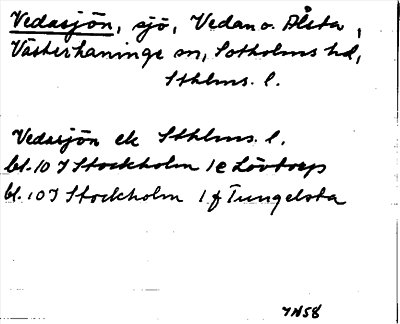 Vedasjön, sjö, Vedan o. Ålsta,
Västerhaninge sn, Sotholms hd,
Sthlms. l.
Vedasjön ek Sthlms. l.
bl. 10 I Stockholm 1e Lövtorp
bl. 10 I Stockholm 1 f Tungelsta